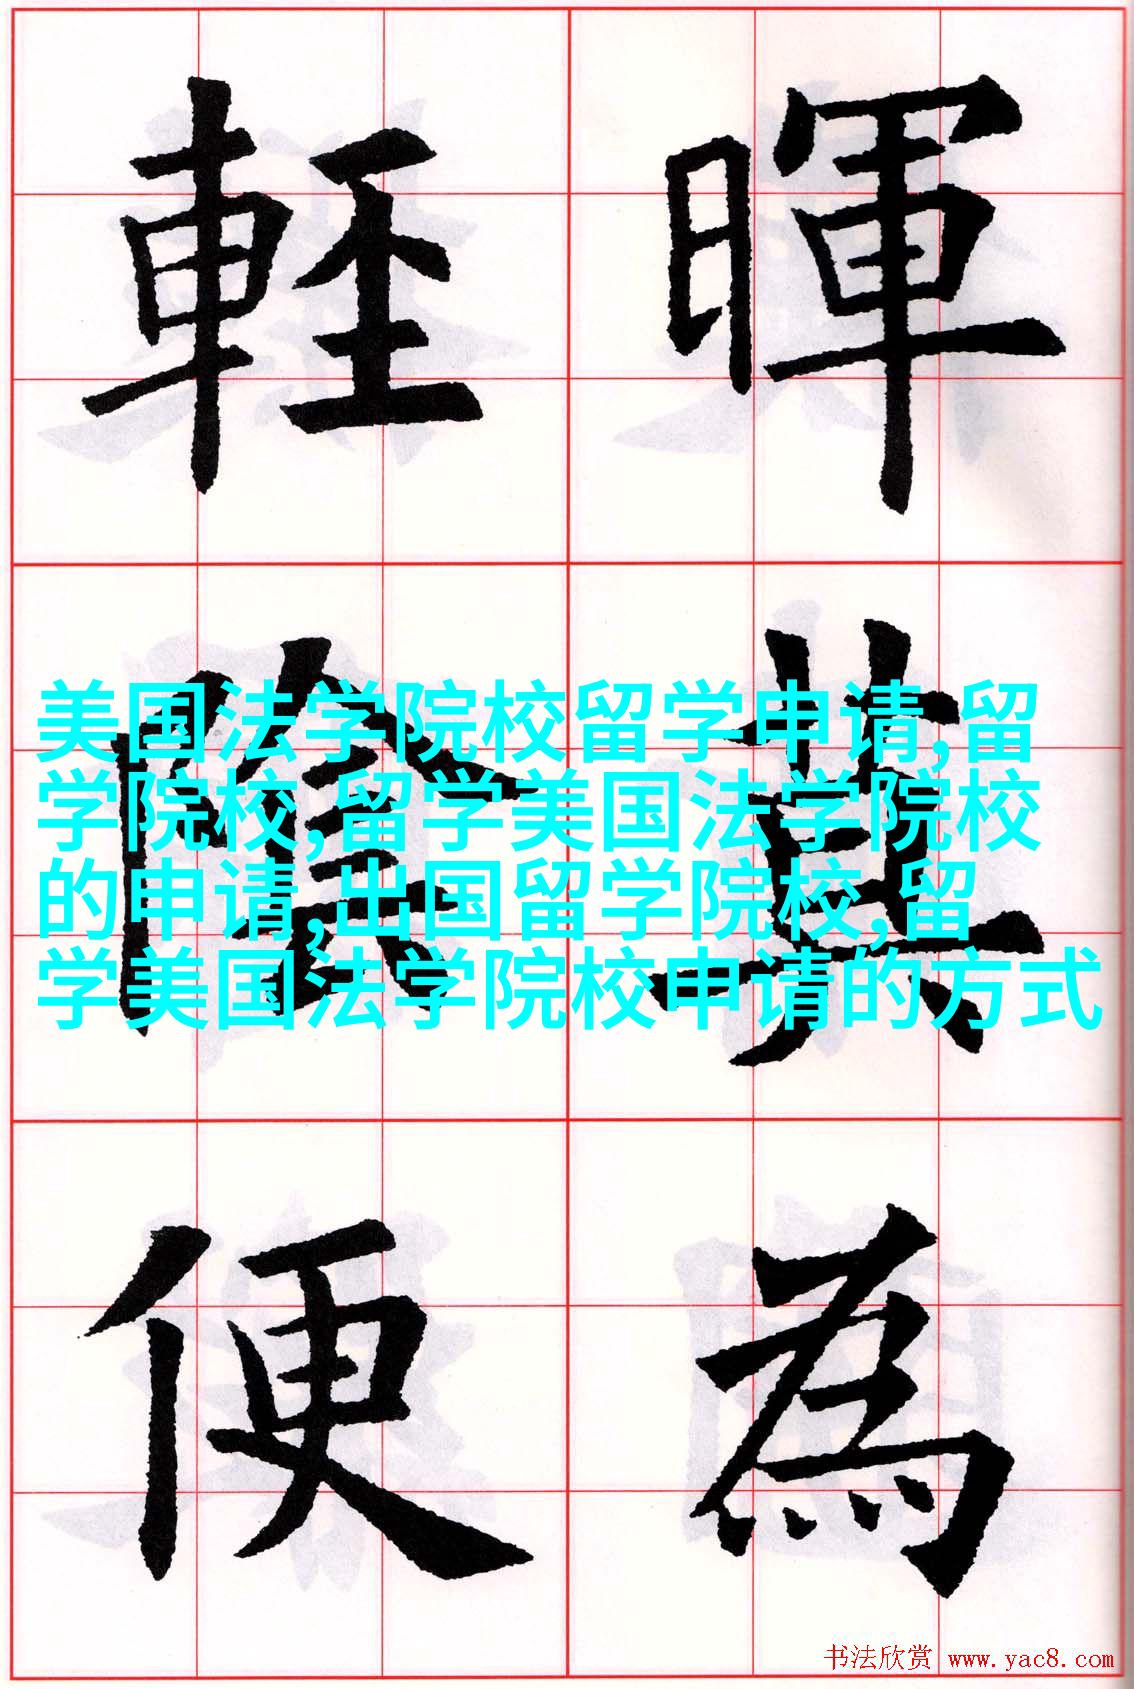 暉莫為
輕陰便
美国法学院校留学申请,留
学院校,留学美国法学院校
的申请,出国留学院校,留
学美国法学院校申请的方式
书法欣赏 www.yac8.com